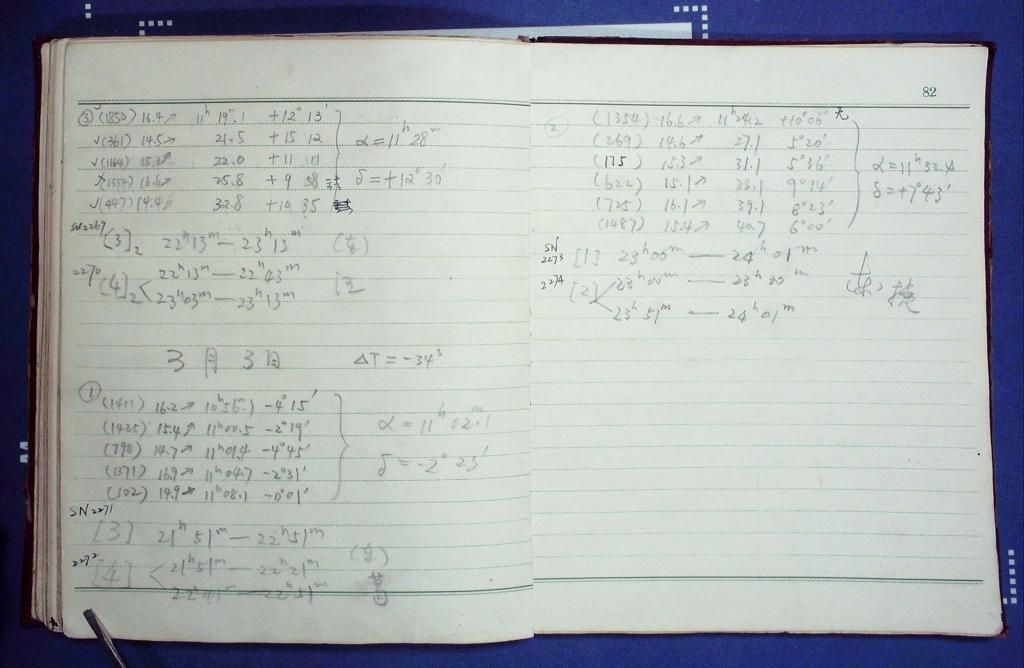 ③ √(1850) 16.4↗ 11ʰ 19ᵐ.1 +12° 13′
√(361) 14.5↗ 21.5 +15 12 α=11ʰ 28ᵐ
√(1164) 15.3↗ 22.0 +11 11
(1354) 16.6↗ 25.8 +9 58 δ=+12°30′
√(447) 14.4↗ 32.8 +10 35
SN2269 [3]₂ 22ʰ13ᵐ—23ʰ13ᵐ
2270 [4]₂ 22ʰ13ᵐ—22ʰ43ᵐ
23ʰ03ᵐ—23ʰ13ᵐ
3月3日 ΔT=-34ˢ
① (1411) 16.2↗ 10ʰ56ᵐ.1 -4°15′
(1425) 15.4↗ 11ʰ00.5 -2°19′ α=11ʰ02ᵐ.1
(798) 14.7↗ 11ʰ01.4 -4°45′
(1371) 16.9↗ 11ʰ04.7 -2°31′ δ=-2°23′
(102) 14.9↗ 11ʰ08.1 -0°01′
SN2271
[3] 21ʰ51ᵐ—22ʰ51ᵐ
2272 [4] 21ʰ51ᵐ—22ʰ21ᵐ
22ʰ41ᵐ—22ʰ51ᵐ
82
② (1354) 16.6↗ 11ʰ24.2 +10°06′
(269) 14.6↗ 27.1 5°20′
(175) 15.3↗ 31.1 5°36′ α=11ʰ32.4
(622) 15.1↗ 33.1 9°14′ δ=+7°43′
(725) 16.1↗ 39.1 8°23′
(1487) 15.4↗ 40.7 6°00′
SN2273 [1] 23ʰ00ᵐ—24ʰ01ᵐ
2274 [2] 23ʰ00ᵐ—23ʰ30ᵐ
23ʰ51ᵐ—24ʰ01ᵐ